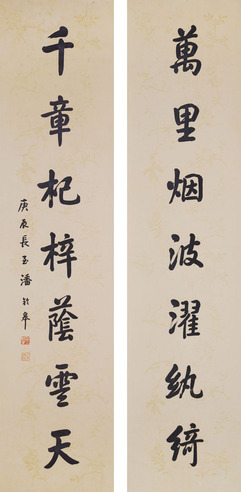 萬里烟波濯紈綺
千章杞梓蔭雲天
庚辰長至潘齡皋